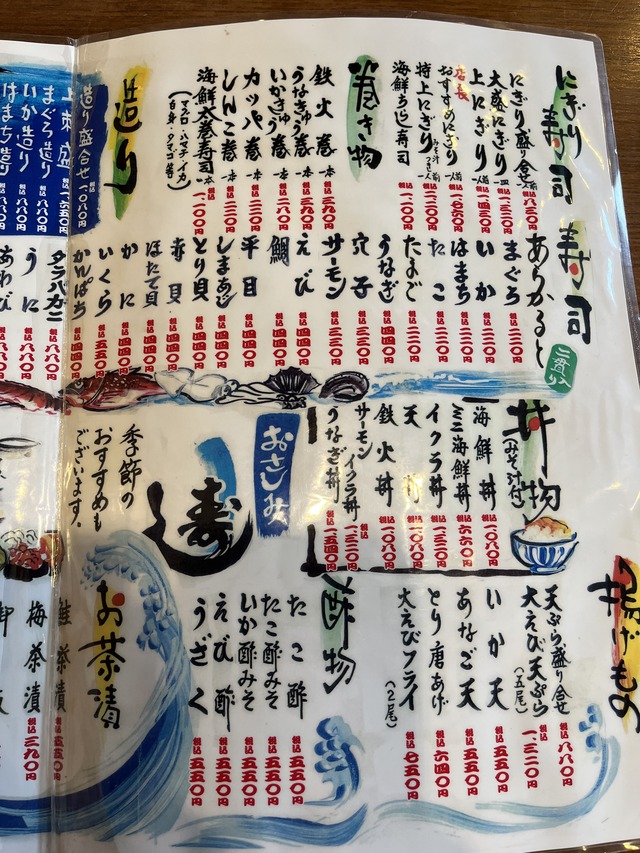 にぎり寿司
にぎり盛り合せ 一人前 税込八三〇円
大盛にぎり
上にぎり 一人前 税込一、四三〇円
店長おすすめにぎり 一人前 税込一、七六〇円
特上にぎり みそ汁つき 一人前 税込二、二〇〇円
海鮮ちらし寿司 税込一、一〇〇円
巻き物
鉄火巻 一本 税込三九〇円
うなきゅう巻 一本
いかきゅう巻 一本 税込二八〇円
カッパ巻 一本 税込二二〇円
しんこ巻 一本 税込二二〇円
海鮮太巻寿司 一本 税込一、一〇〇円
(マグロ・ハマチ・イカ
白身・タマゴ等)
造り
造り盛合せ 一、〇八〇円
上刺盛 一、六五〇円
まぐろ造り 税込八八〇円
いか造り 税込八八〇円
はまち造り 税込八八〇円
寿司
あらかると
二貫入り
まぐろ 税込二二〇円
いか 税込二二〇円
はまち 税込二二〇円
たこ 税込二二〇円
たまご 税込二二〇円
うなぎ 税込四四〇円
穴子 税込三三〇円
サーモン 税込三三〇円
えび 税込四四〇円
鯛 税込四四〇円
平目 税込四四〇円
しまあじ 税込四四〇円
とり貝 税込四四〇円
赤貝 税込四四〇円
ほたて貝 税込四四〇円
かに 税込四四〇円
いくら 税込五五〇円
かんぱち 税込四四〇円
タラバガニ 税込八八〇円
うに 税込八八〇円
あわび 税込八八〇円
丼物
(みそ汁付)
海鮮丼 税込一、〇八〇円
ミニ海鮮丼 税込六六〇円
イクラ丼 税込一、三二〇円
天丼 税込一、〇八〇円
鉄火丼 税込一、〇八〇円
サーモンイクラ丼 税込一、三二〇円
うなぎ丼 税込一、五四〇円
おさしみ
寿し
季節の
おすすめも
ございます。
揚げもの
天ぷら盛り合せ 税込八八〇円
大えび天ぷら(五尾) 税込一、三二〇円
いか天 税込五五〇円
あなご天 税込五五〇円
とり唐あげ 税込六四〇円
大えびフライ(2尾) 税込七五〇円
酢物
たこ酢 税込五五〇円
たこ酢みそ 税込五五〇円
いか酢みそ 税込五五〇円
えび酢 税込五五〇円
うざく 税込五五〇円
お茶漬
鮭茶漬 税込五五〇円
梅茶漬 税込三九〇円